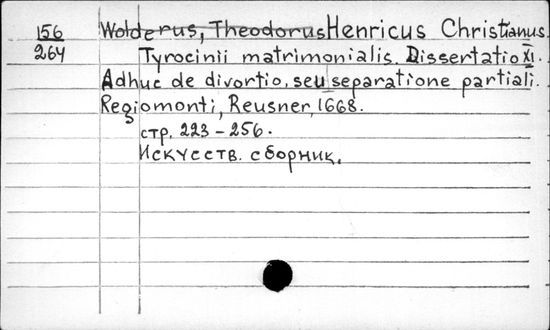 156 Wolderus, Theodorus Henricus Christianus.
264 Tyrocinii matrimonialis. Dissertatio XI.
Adhuc de divortio, seu separatione partiali.
Regiomonti, Reusner, 1668.
стр. 223-256.
Искусств. сборник.